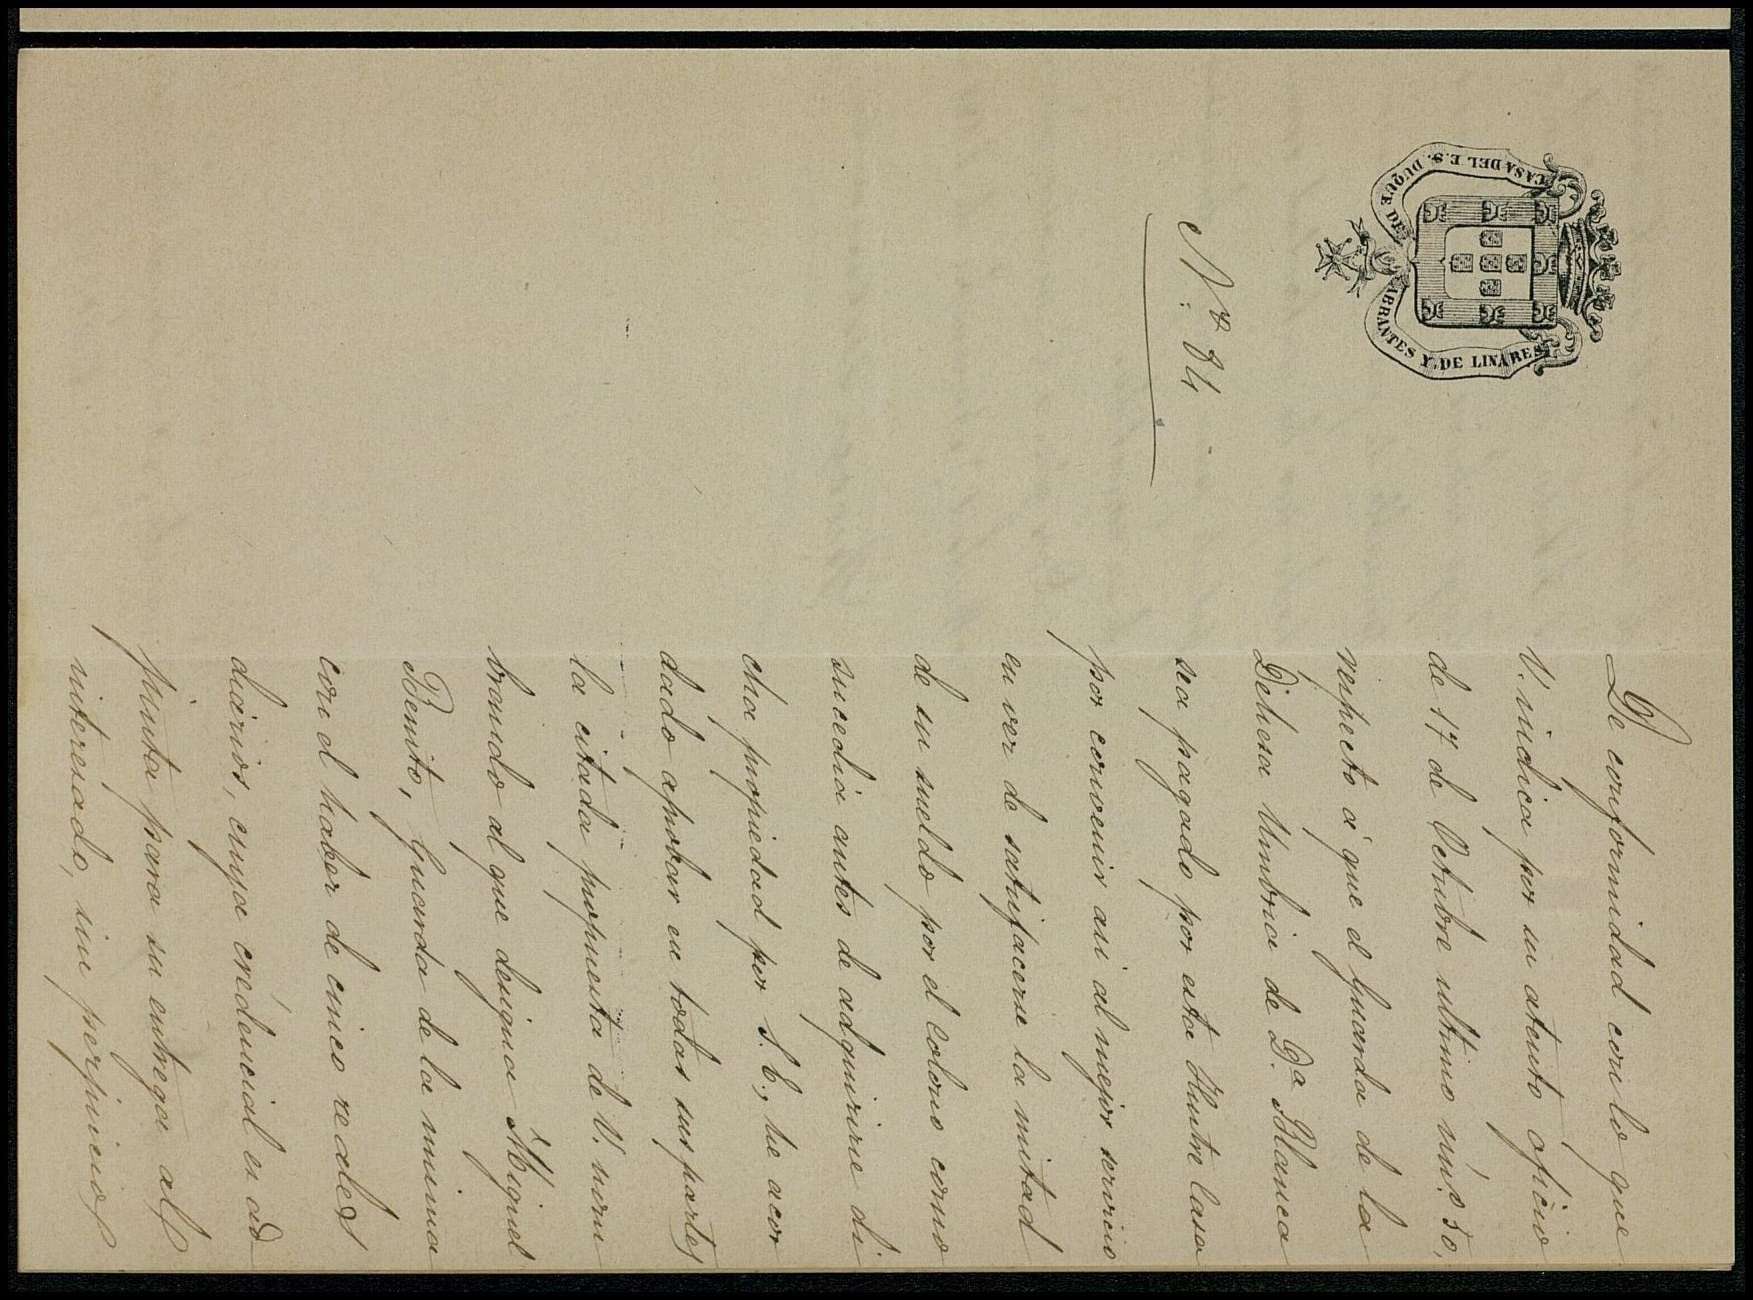 CASA DEL E.S. DUQUE DE ABRANTES Y DE LINARES
Nº 84
De conformidad con lo que
V. indica por su atento oficio
de 17 de Octubre ultimo núº 50,
respecto á que el Guarda de la
Dehesa Umbria de Dª Blanca
sea pagado por esta Ilustre Casa
por convenir asi al mejor servicio
en vez de satisfacerse la mitad
de su sueldo por el Colono como
sucedia antes de adquirirse di
cha propiedad por S.E., he acor
dado aprobar en todas sus partes
la citada propuesta de V. nom
brando al que designa Miguel
Benito, Guarda de la misma
con el haber de cinco reales
diarios, cuya credencial es ad
junta para su entrega al
interesado, sin perjuicio